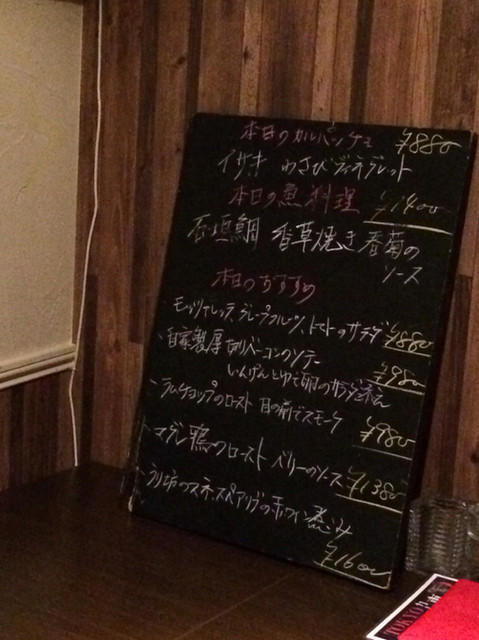 本日のカルパッチョ ¥880
イサキ わさびヴィネグレット
本日の魚料理 ¥1400
石垣鯛 香草焼き 春菊の
ソース
本日のおすすめ
・モッツァレッラ、グレープフルーツ、トマトのサラダ ¥880
・自家製厚切りベーコンのソテー
いんげんとゆで卵のサラダ添え ¥980
・ラムチョップのロースト 目の前でスモーク ¥980
・マグレ鴨のロースト ベリーのソース ¥1380
・うり坊のスネ、スペアリブの赤ワイン煮込み
¥1600
TOKYO